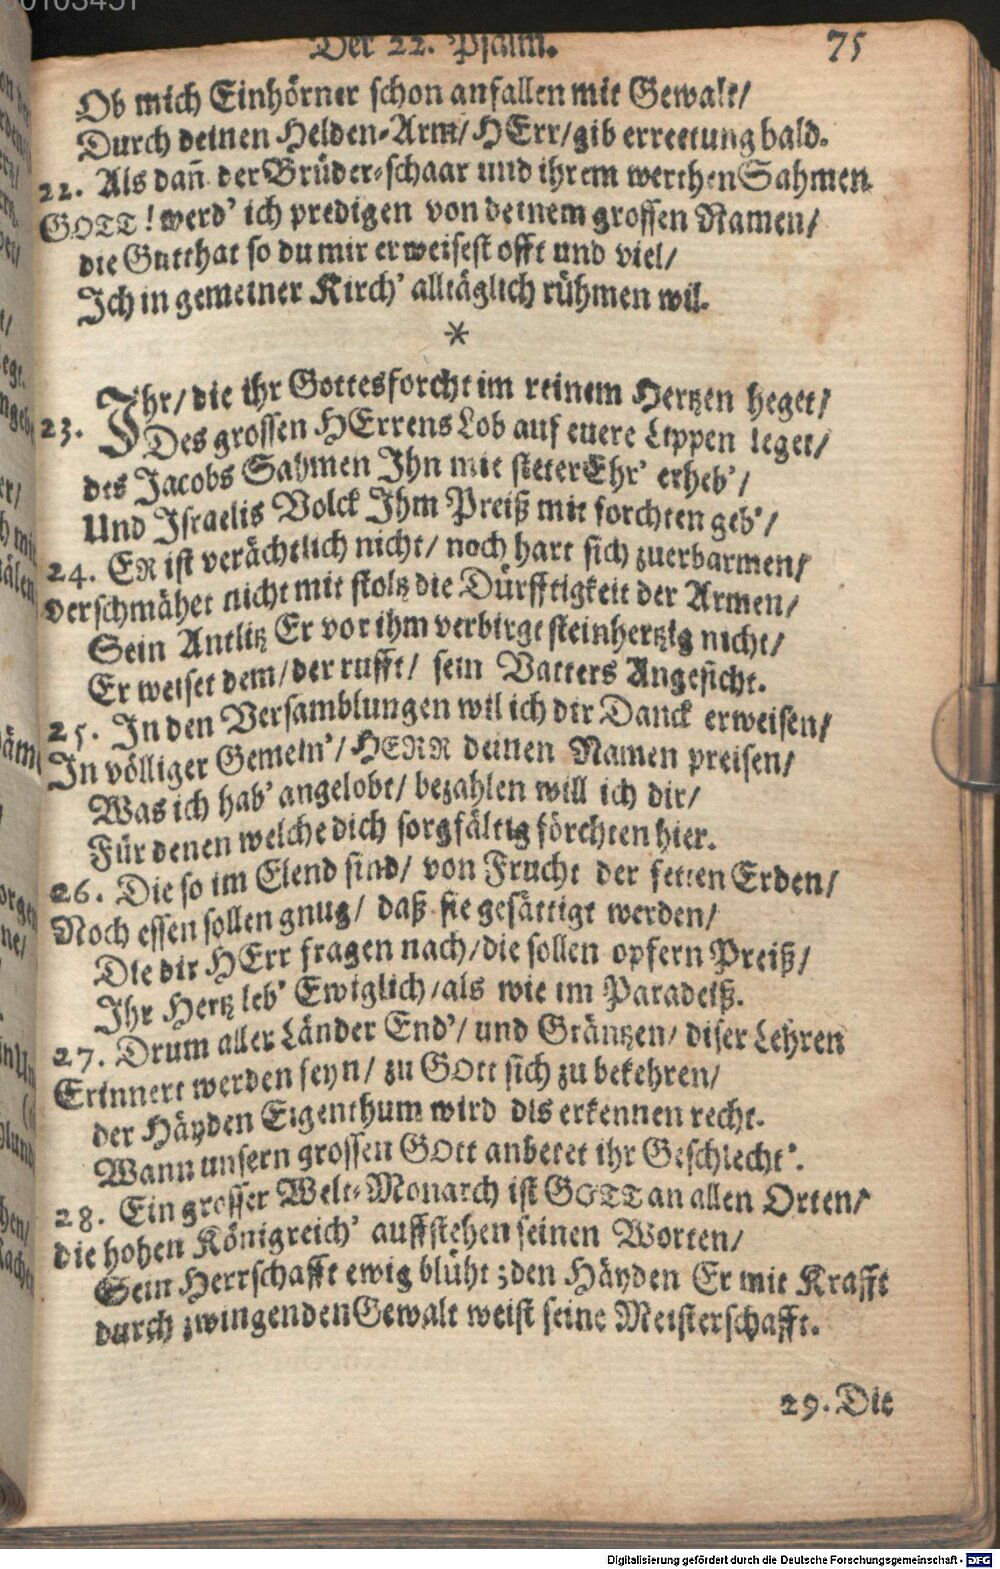 00103451
Der 22. Psalm. 75
Ob mich Einhörner schon anfallen mit Gewalt/
Durch deinen Helden-Arm/ HErr/ gib errettung bald.
22. Als dañ der Brüder-schaar und ihrem werthen Sahmen
GOTT! werd' ich predigen von deinem grossen Namen/
die Gutthat so du mir erweisest offt und viel/
Ich in gemeiner Kirch' alltäglich rühmen wil.
*
23. Ihr/ die ihr Gottesforcht im reinem Hertzen heget/
Des grossen HErrens Lob auf euere Lippen leget/
des Jacobs Sahmen Ihn mit steter Ehr' erheb'/
Und Israelis Volck Ihm Preiß mit forchten geb'/
24. ER ist verächtlich nicht/ noch hart sich zuerbarmen/
verschmähet nicht mit stoltz die Dürfftigkeit der Armen/
Sein Antlitz Er vor ihm verbirgt steinhertzig nicht/
Er weiset dem/ der rufft/ sein Vatters Angesicht.
25. In den Versamblungen wil ich dir Danck erweisen/
In völliger Gemein'/ HERR deinen Namen preisen/
Was ich hab' angelobt/ bezahlen will ich dir/
Für denen welche dich sorgfältig förchten hier.
26. Die so im Elend sind/ von Frucht der fetten Erden/
Noch essen sollen gnug/ daß sie gesättigt werden/
Die dir HErr fragen nach/ die sollen opfern Preiß/
Ihr Hertz leb' Ewiglich/ als wie im Paradeiß.
27. Drum aller Länder End'/ und Gräntzen/ diser Lehren
Erinnert werden seyn/ zu GOtt sich zu bekehren/
der Häyden Eigenthum wird dis erkennen recht.
Wann unsern grossen GOtt anbetet ihr Geschlecht'.
28. Ein grosser Welt-Monarch ist GOTT an allen Orten/
die hohen Königreich' auffstehen seinen Worten/
Sein Herrschafft ewig blüht; den Häyden Er mit Krafft
durch zwingenden Gewalt weist seine Meisterschafft.
29. Die
Digitalisierung gefördert durch die Deutsche Forschungsgemeinschaft - DFG